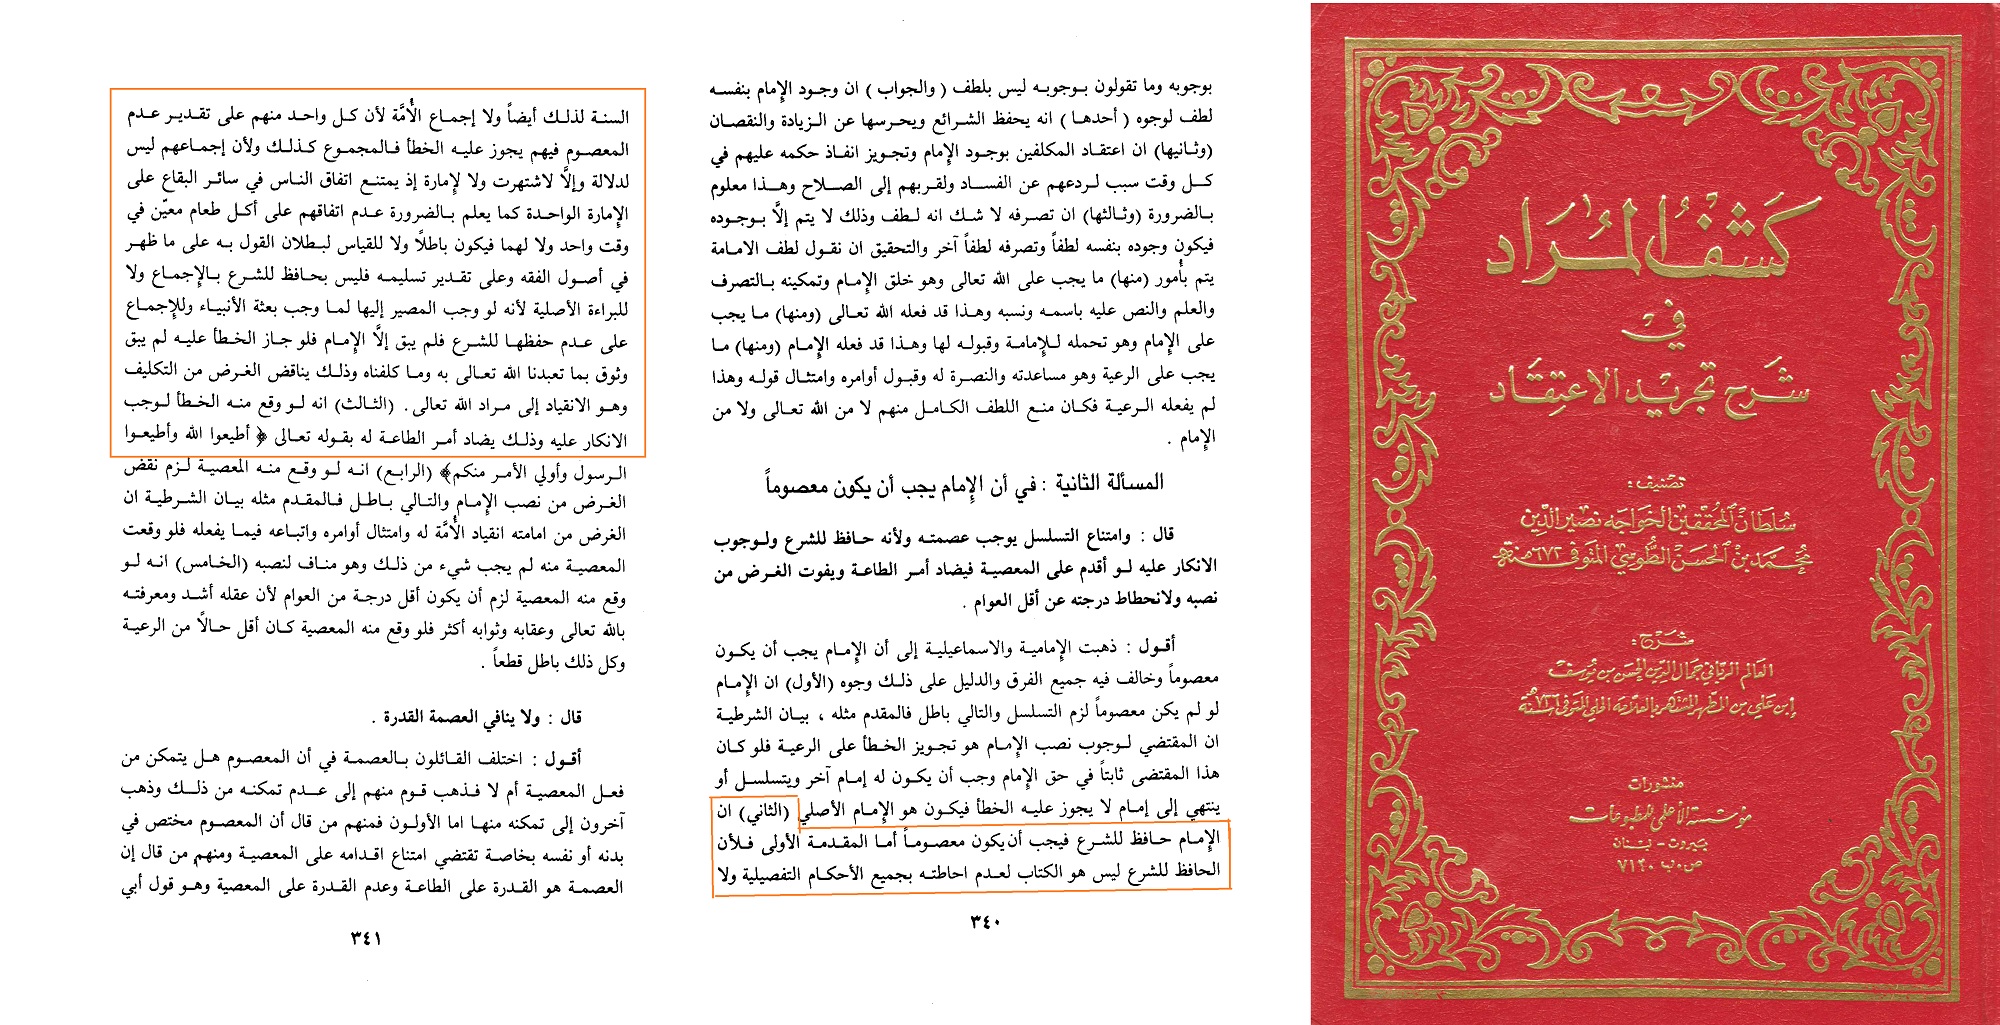 كشف المراد
في
شرح تجريد الاعتقاد
تصنيف:
سلطان المحققين الخواجه نصير الدين
محمد بن الحسن الطوسي المتوفى ٦٧٢ سنة
شرح:
العالم الرباني جمال الدين الحسن بن يوسف
ابن علي بن المطهر المشتهر بالعلامة الحلي المتوفى سنة ٧٢٦
منشورات
مؤسسة الأعلمي للمطبوعات
بيروت - لبنان
ص.ب ٧١٢٠
بوجوبه وما تقولون بوجوبه ليس بلطف (والجواب) ان وجود الإمام بنفسه
لطف لوجوه (أحدها) انه يحفظ الشرائع ويحرسها عن الزيادة والنقصان
(وثانيها) ان اعتقاد المكلفين بوجود الإمام وتجويز انفاذ حكمه عليهم في
كل وقت سبب لردعهم عن الفساد ولقربهم إلى الصلاح وهذا معلوم
بالضرورة (وثالثها) ان تصرفه لا شك انه لطف وذلك لا يتم إلَّا بوجوده
فيكون وجوده بنفسه لطفاً وتصرفه لطفاً آخر والتحقيق ان نقول لطف الامامة
يتم بأُمور (منها) ما يجب على الله تعالى وهو خلق الإمام وتمكينه بالتصرف
والعلم والنص عليه باسمه ونسبه وهذا قد فعله الله تعالى (ومنها) ما يجب
على الإمام وهو تحمله للإمامة وقبوله لها وهذا قد فعله الإمام (ومنها) ما
يجب على الرعية وهو مساعدته والنصرة له وقبول أوامره وامتثال قوله وهذا
لم يفعله الرعية فكان منع اللطف الكامل منهم لا من الله تعالى ولا من
الإمام .
المسألة الثانية : في أن الإمام يجب أن يكون معصوماً
قال : وامتناع التسلسل يوجب عصمته ولأنه حافظ للشرع ولوجوب
الانكار عليه لو أقدم على المعصية فيضاد أمر الطاعة ويفوت الغرض من
نصبه ولانحطاط درجته عن أقل العوام .
أقول : ذهبت الإمامية والاسماعيلية إلى أن الإمام يجب أن يكون
معصوماً وخالف فيه جميع الفرق والدليل على ذلك وجوه (الأول) ان الإمام
لو لم يكن معصوماً لزم التسلسل والتالي باطل فالمقدم مثله ، بيان الشرطية
ان المقتضي لوجوب نصب الإمام هو تجويز الخطأ على الرعية فلو كان
هذا المقتضى ثابتاً في حق الإمام وجب أن يكون له إمام آخر ويتسلسل أو
ينتهي إلى إمام لا يجوز عليه الخطأ فيكون هو الإمام الأصلي (الثاني) ان
الإمام حافظ للشرع فيجب أن يكون معصوماً أما المقدمة الأولى فلأن
الحافظ للشرع ليس هو الكتاب لعدم احاطته بجميع الأحكام التفصيلية ولا
٣٤٠
السنة لذلك أيضاً ولا إجماع الأُمَّة لأن كل واحد منهم على تقدير عدم
المعصوم فيهم يجوز عليه الخطأ فالمجموع كذلك ولأن إجماعهم ليس
لدلالة وإلَّا لاشتهرت ولا لإمارة إذ يمتنع اتفاق الناس في سائر البقاع على
الإمارة الواحدة كما يعلم بالضرورة عدم اتفاقهم على أكل طعام معيّن في
وقت واحد ولا لهما فيكون باطلًا ولا للقياس لبطلان القول به على ما ظهر
في أصول الفقه وعلى تقدير تسليمه فليس بحافظ للشرع بالإجماع ولا
للبراءة الأصلية لأنه لو وجب المصير إليها لما وجب بعثة الأنبياء وللإجماع
على عدم حفظها للشرع فلم يبق إلَّا الإمام فلو جاز الخطأ عليه لم يبق
وثوق بما تعبدنا الله تعالى به وما كلفناه وذلك يناقض الغرض من التكليف
وهو الانقياد إلى مراد الله تعالى . (الثالث) انه لو وقع منه الخطأ لوجب
الانكار عليه وذلك يضاد أمر الطاعة له بقوله تعالى ﴿ أطيعوا الله وأطيعوا
الرسول وأولي الأمر منكم﴾ (الرابع) انه لو وقع منه المعصية لزم نقض
الغرض من نصب الإمام والتالي باطل فالمقدم مثله بيان الشرطية ان
الغرض من امامته انقياد الأُمَّة له وامتثال أوامره واتباعه فيما يفعله فلو وقعت
المعصية منه لم يجب شيء من ذلك وهو مناف لنصبه (الخامس) انه لو
وقع منه المعصية لزم أن يكون أقل درجة من العوام لأن عقله أشد ومعرفته
بالله تعالى وعقابه وثوابه أكثر فلو وقع منه المعصية كان أقل حالًا من الرعية
وكل ذلك باطل قطعاً .
قال : ولا ينافي العصمة القدرة .
أقول : اختلف القائلون بالعصمة في أن المعصوم هل يتمكن من
فعل المعصية أم لا فذهب قوم منهم إلى عدم تمكنه من ذلك وذهب
آخرون إلى تمكنه منها اما الأولون فمنهم من قال أن المعصوم مختص في
بدنه أو نفسه بخاصة تقتضي امتناع اقدامه على المعصية ومنهم من قال إن
العصمة هو القدرة على الطاعة وعدم القدرة على المعصية وهو قول أبي
٣٤١